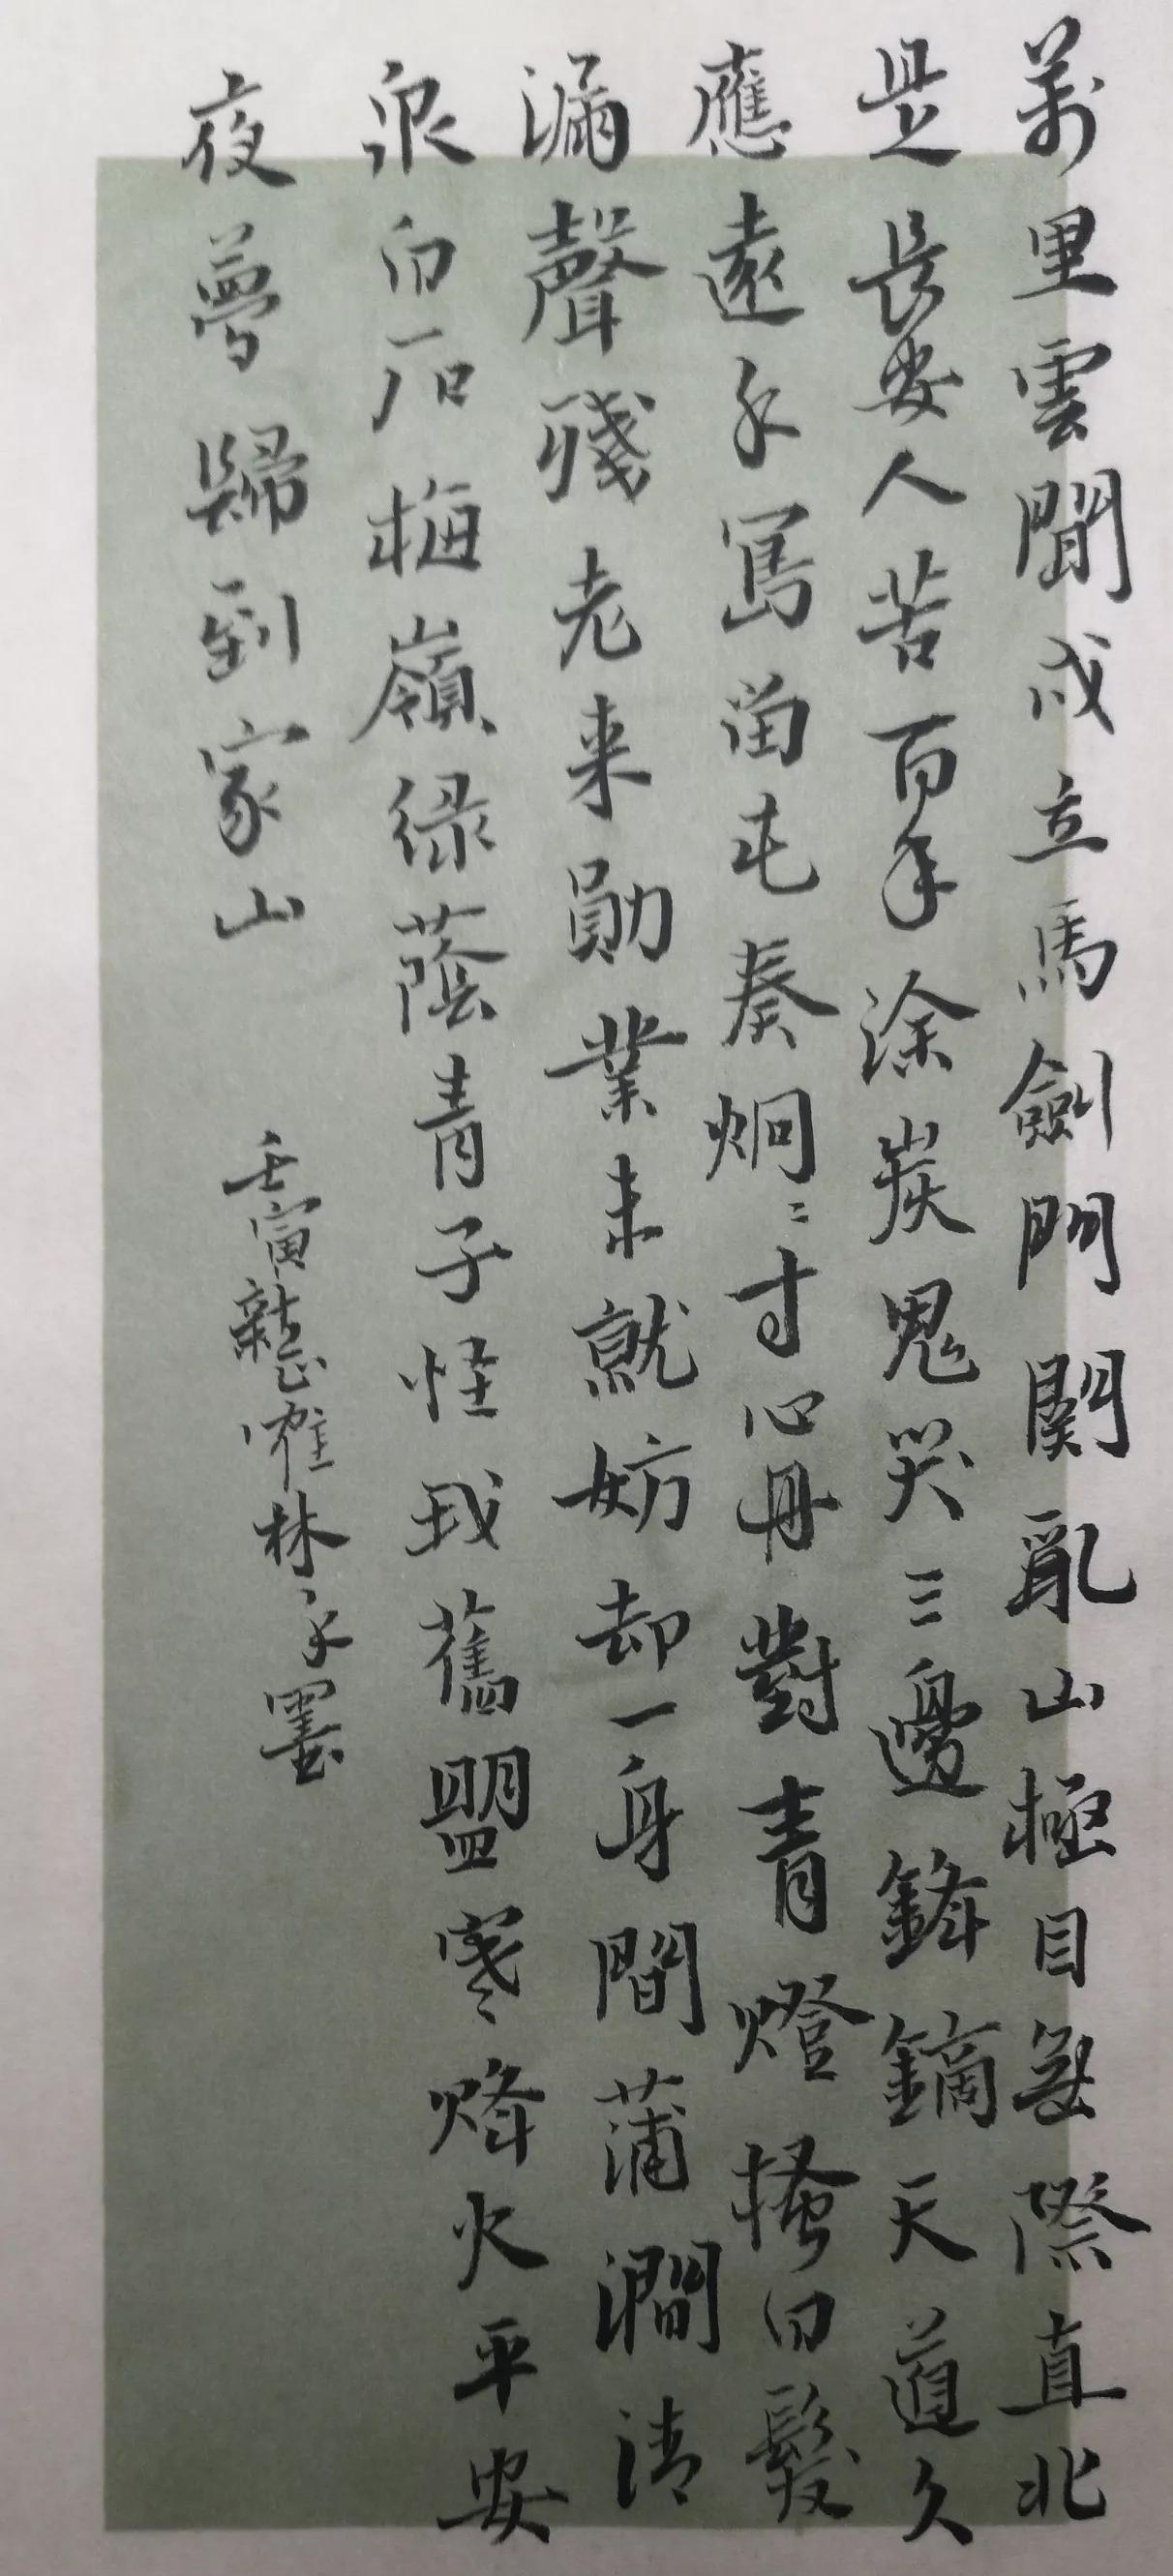 萬里雲間戍立馬劍門關亂山極目無際直北
是長安人苦百年涂炭鬼哭三邊鋒鏑天道久
應還手寫留屯奏炯〻寸心丹對青燈搔白髮
漏聲殘老来勛業未就妨却一身間蒲澗清
泉白石梅嶺绿蔭青子怪我舊盟寒烽火平安
夜夢歸到家山
壬寅 林 墨